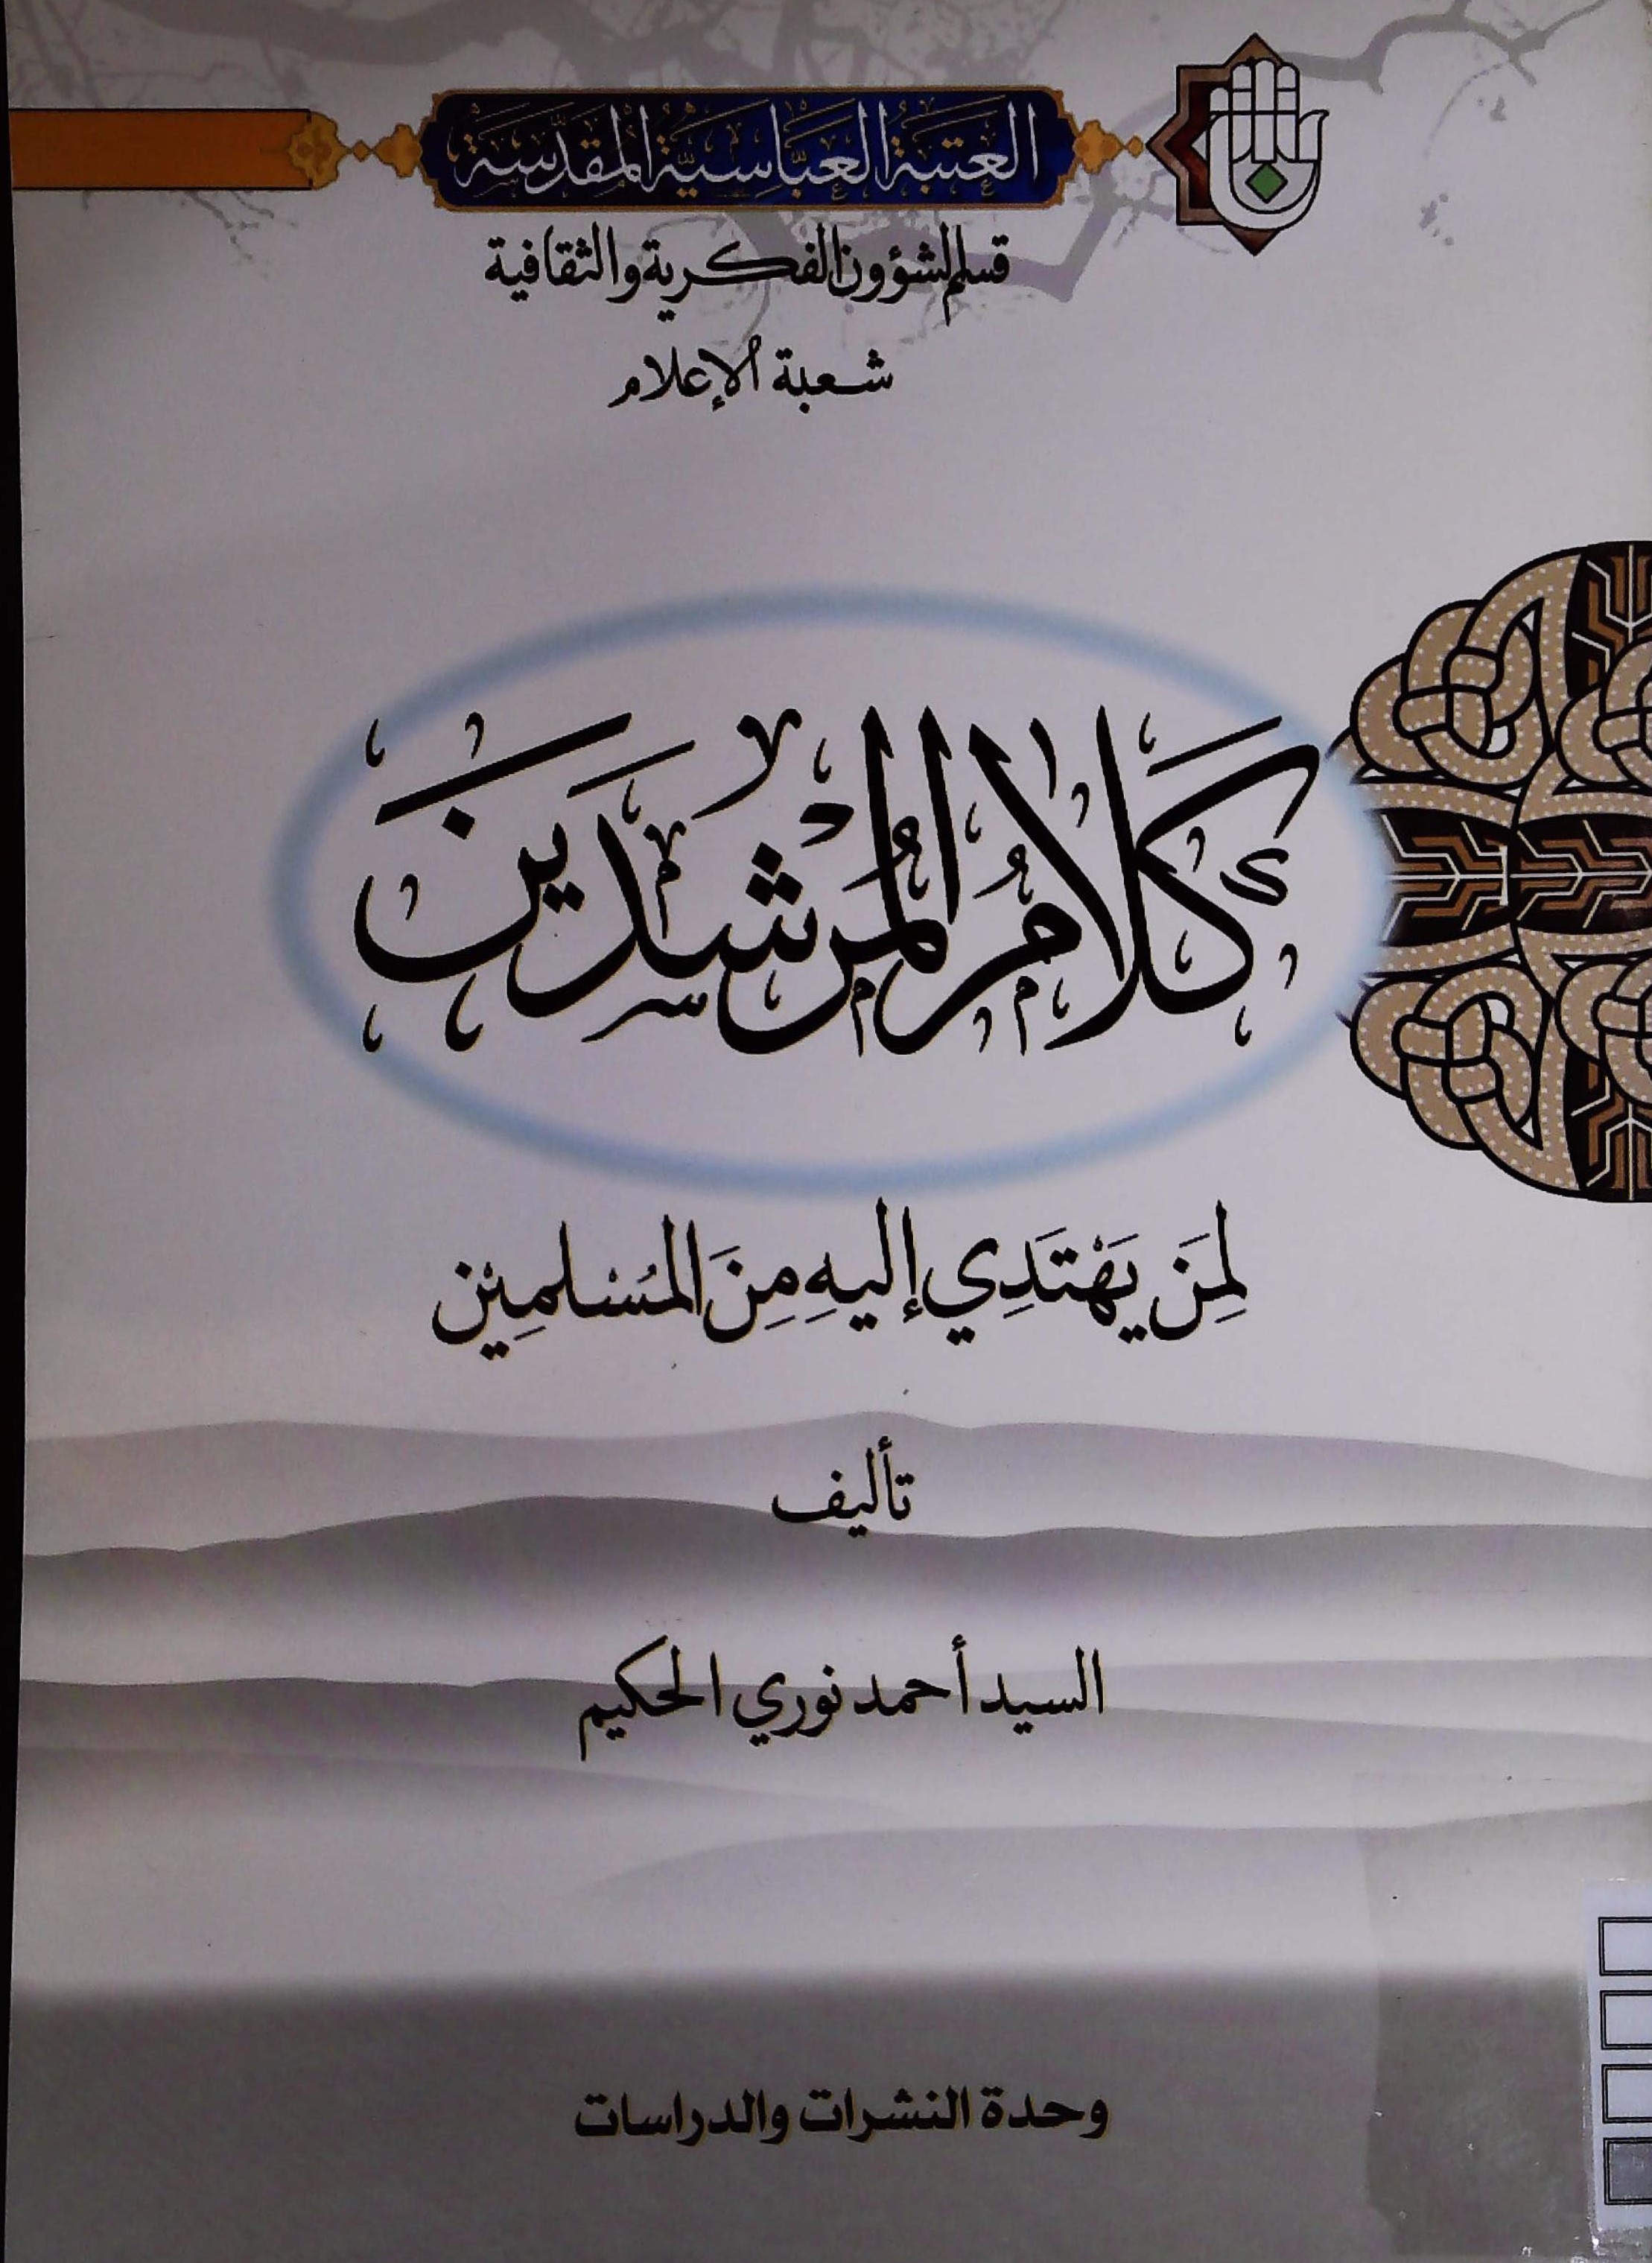 العتبة العباسية المقدسة
قسم الشؤون الفكرية والثقافية
شعبة الإعلام
كَلامُ المُرْشِدَينَ
لِمَنْ يَهْتَدِي إليهِ مِنَ المُسْلمِيْن
تأليف
السيد أحمد نوري الحكيم
وحدة النشرات والدراسات